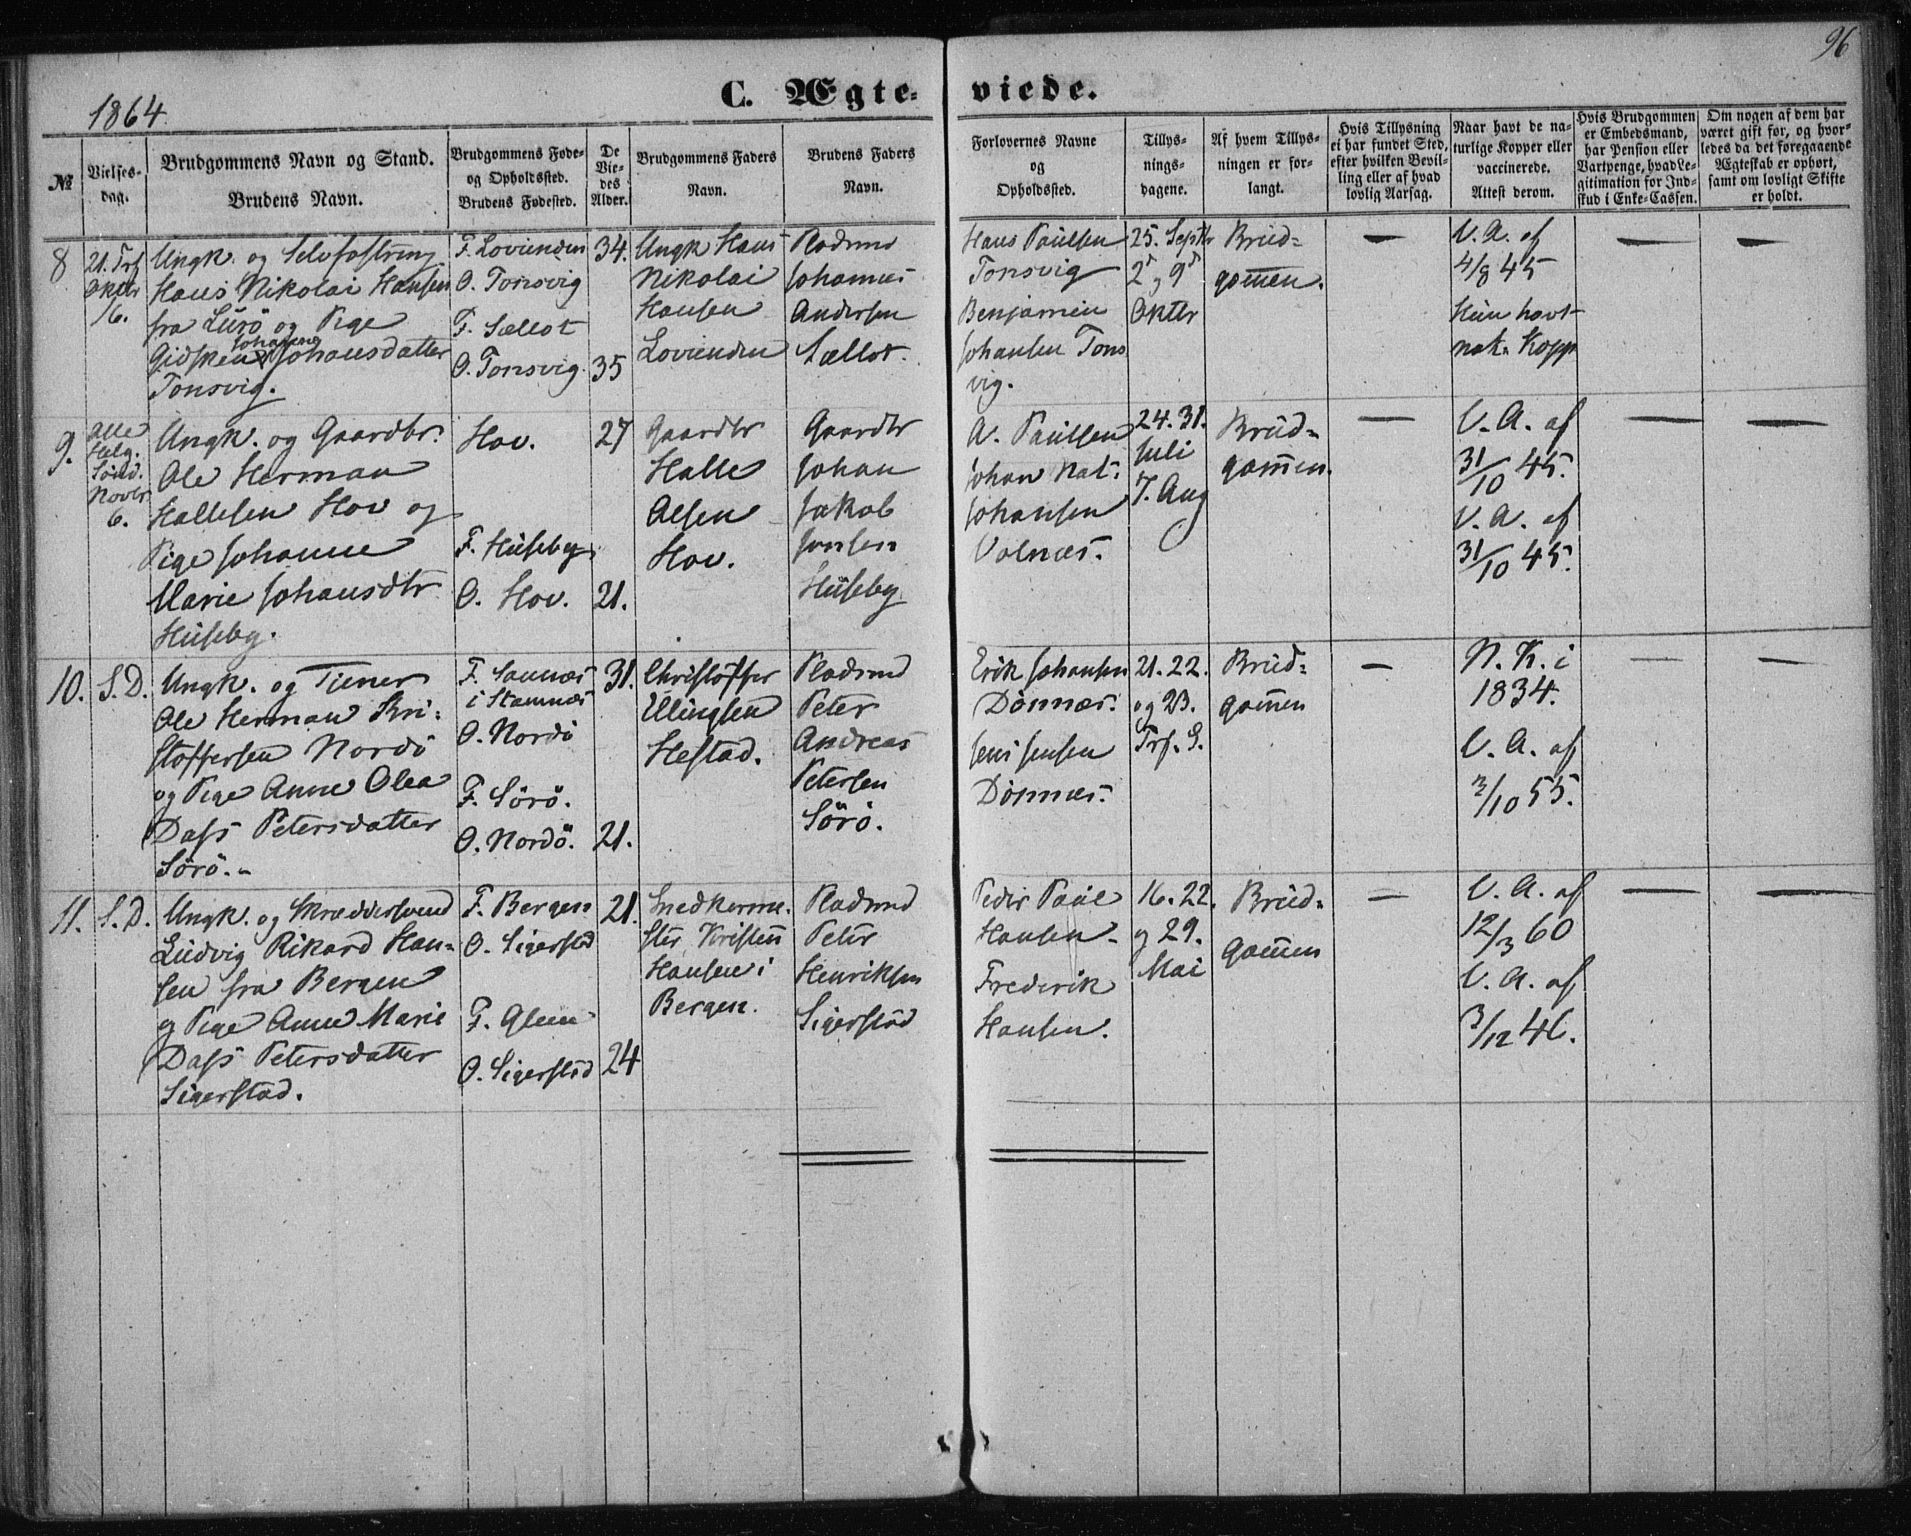 96
1864.
C. Ægte- viede.
№
Vielses-
dag.
Brudgommens Navn og Stand.
Brudens Navn.
Brudgommens Føde-
og Opholdssted.
Brudens Fødested.
De
Vie-
des
Alder.
Brudgommens Faders
Navn.
Brudens Faders
Navn.
Forlovernes Navne
og
Opholdssted.
Tillys-
nings-
dagene.
Af hvem Tillys-
ningen er for-
langt.
Hvis Tillysning
ei har fundet Sted,
efter hvilken Bevil-
ling eller af hvad
lovlig Aarsag.
Naar havt de na-
turlige Kopper eller
vaccinerede.
Attest derom.
Hvis Brudgommen
er Embedsmand,
har Pension eller
Vartpenge, hvad Le-
gitimation for Ind-
skud i Enke-Cassen.
Om nogen af dem har
været gift før, og hvor-
ledes da det foregaaende
Ægteskab er ophørt,
samt om lovligt Skifte
er holdt.
8
21. Trf
Oktbr
16.
Ungk. og Selvfostring
Hans Nikolai Hansen
fra Lurö og Pige
Johanne
Gidsken Johansdatter
Tonsvig.
F. Lovunden
O. Tonsvig
F. Sællot
O. Tonsvig.
34.
35
Ungk Hans
Nikolai
Hansen
Lovunden
Pladsmd
Johannes
Andersen
Sællot.
Hans Paulsen
Tonsvig
Benjamin
Johansen Tons
vig.
25. Septbr
2d, 9d
Oktbr
Brud-
gommen.
—
V. A. af
4/8 45
Hun havt
nat. Kopp
—
—
9.
Alle
Helg.
Sönd.
Novbr
6.
Ungk. og Gaardbr.
Ole Herman
Hallesen Hov og
Pige Johanne
Marie Johansdtr
Huseby.
Hov.
F. Huseby.
O. Hov.
27
21.
Gaardbr
Halle
Olsen
Hov.
Gaardbr
Johan
Jakob
Jonsen
Huseby
A. Paulsen
Johan Nat.
Johansen
Valnæs.
24. 31.
Juli
7. Aug
Brud-
gommen.
—
V. A. af
31/10 45.
V. A. af
31/10 45.
—
—
10.
S. D.
Ungk. og Tjener
Ole Herman Kri-
stoffersen Nordö
og Pige Anne Olea
Dass Petersdatter
Sörö.
F. Sannæs
i Stamnæs
O. Nordö
F. Sörö.
O. Nordö.
31.
21.
Christoffer
Ellingsen
Hestad.
Pladsmd
Peter
Andreas
Petersen
Sörö.
Erik Johansen
Dönnæs.
Jens Jensen
Dönnæs.
21. 22.
og 23.
Trf. S.
Brud-
gommen
—
N. K. i
1834.
V. A. af
2/10 55.
—
—
11.
S. D.
Ungk. og Skræddersvend
Ludvig Rikard Han-
sen fra Bergen
og Pige Anne Marie
Dass Petersdatter
Sigerstad.
F. Bergen
O. Sigerstad
F. Glein
O. Sigerstad
21.
24
Snedkerme-
ster Kristen
Hansen i
Bergen.
Pladsmd
Peter
Henriksen
Sigerstad
Peder Paul
Hansen
Frederik
Hansen.
16. 22.
og 29.
Mai
Brud-
gommen
—
V. A. af
12/3 60
V. A. af
3/12 46.
—
—